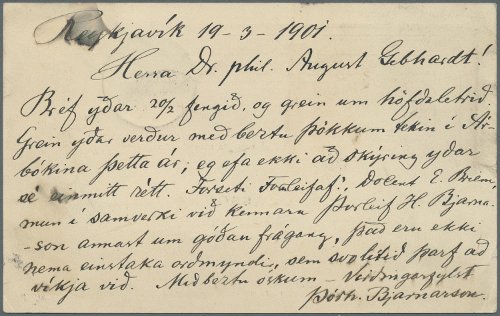 Reykjavík 19-3-1901.
Herra Dr. phil. August Gebhardt!
Bréf yðar 20/2 fengið, og grein um höfðaletrið.
Grein yðar verður með beztu þökkum tekin í Ár-
bókina þetta ár; eg efa ekki að skýring yðar
sé einmitt rétt. Forseti Fornleifaf., Docent E. Briem
mun í samverki við kennara Þorleif H. Bjarna-
-son annast um góðan frágang, það eru ekki
nema einstaka orðmyndir, sem svolitið þarf að
víkja við. Með beztu óskum - Virðingarfylst
Þórh. Bjarnarson.